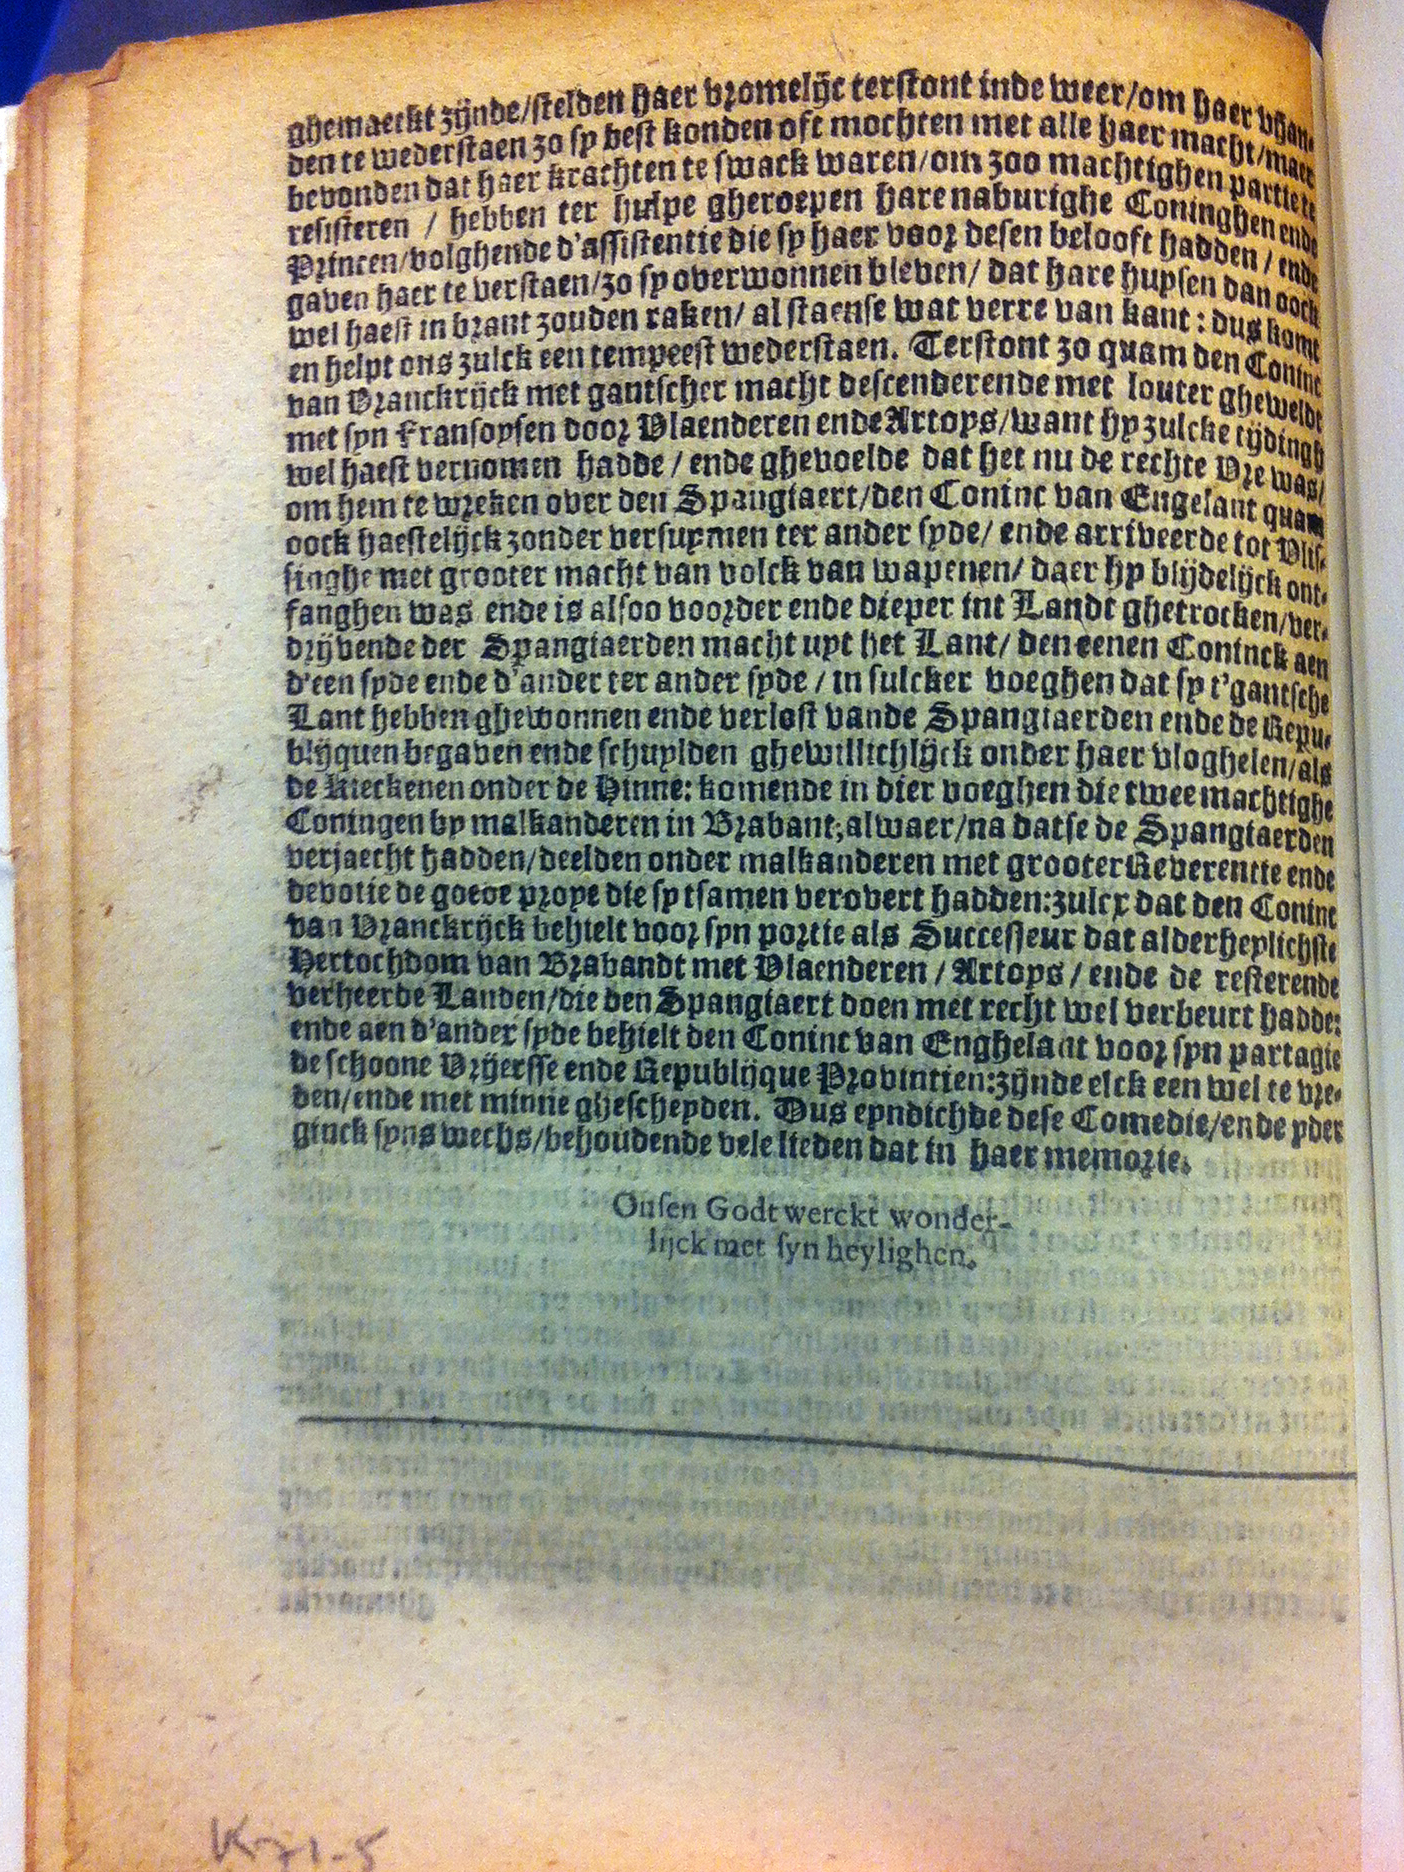 ghemaeckt zijnde/stelden haer vromelijc terstont inde weer/om haer vyan-
den te wederstaen zo sy best konden oft mochten met alle haer macht/maer
bevonden dat haer krachten te swack waren/om zoo machtighen partie te
resisteren / hebben ter hulpe gheroepen hare naburighe Coninghen ende
Princen/volghende d'assistentie die sy haer voor desen belooft hadden / ende
gaven haer te verstaen/zo sy overwonnen bleven/ dat hare huysen dan oock
wel haest in brant zouden raken/ al staense wat verre van kant : dus komt
en helpt ons zulck een tempeest wederstaen. Terstont zo quam den Coninc
van Vranckrijck met gantscher macht descenderende met louter ghewelde
met syn Fransoysen door Vlaenderen ende Artoys/want hy zulcke tijdingh
wel haest vernomen hadde / ende ghevoelde dat het nu de rechte Vre was/
om hem te wreken over den Spangiaert/den Coninc van Engelant quam
oock haestelijck zonder versuymen ter ander syde/ ende arriveerde tot Vlis-
singhe met grooter macht van volck van wapenen/ daer hy blijdelijck ont-
fanghen was ende is alsoo voorder ende dieper int Landt ghetrocken/ver-
drijvende der Spangiaerden macht uyt het Lant/ den eenen Coninck aen
d'een syde ende d'ander ter ander syde / in sulcker voeghen dat sy t'gantsche
Lant hebben ghewonnen ende verlost vande Spangiaerden ende de Repu-
blijquen begaven ende schuylden ghewillichlijck onder haer vloghelen/als
de Kieckenen onder de Hinne: komende in dier voeghen die twee machtighe
Coningen by malkanderen in Brabant, alwaer/na datse de Spangiaerden
verjaecht hadden/deelden onder malkanderen met grooter Reverentie ende
devotie de goede proye die sy tsamen verovert hadden: zulcx dat den Coninc
van Vranckrijck behielt voor syn portie als Successeur dat alderheylichste
Hertochdom van Brabandt met Vlaenderen / Artoys / ende de resterende
verheerde Landen/die den Spangiaert doen met recht wel verbeurt hadde:
ende aen d'ander syde behielt den Coninc van Enghelant voor syn partagie
de schoone Vrijersse ende Republijque Provintien: zijnde elck een wel te vre-
den/ende met minne ghescheyden. Dus eyndichde dese Comedie/ende yder
ginck syns wechs/behoudende vele lieden dat in haer memorie.
Onsen Godt werckt wonder-
lijck met syn heylighen.
K71-5